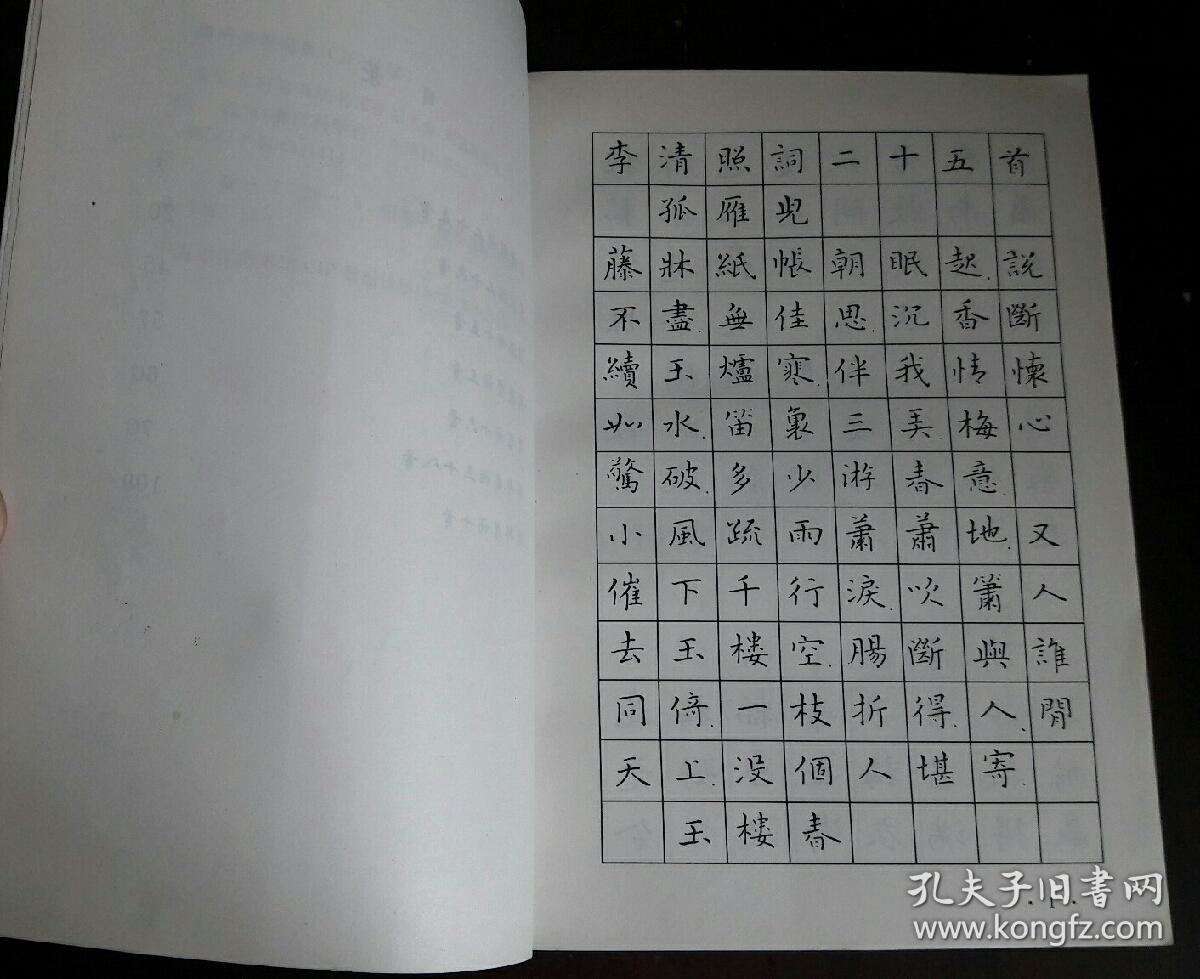 李清照詞二十五首
孤雁児
藤牀紙帳朝眠起.說
不盡.無佳思沉香斷
續玉爐寒.伴我情懷
如水.笛裏三弄梅心
驚破.多少游春意
小風疏雨蕭蕭地.又
催下千行淚.吹簫人
去玉樓空.腸斷與誰
同倚.一枝折得.人間
天上.没個人堪寄
玉樓春
·1·
孔夫子旧书网
www.kongfz.com